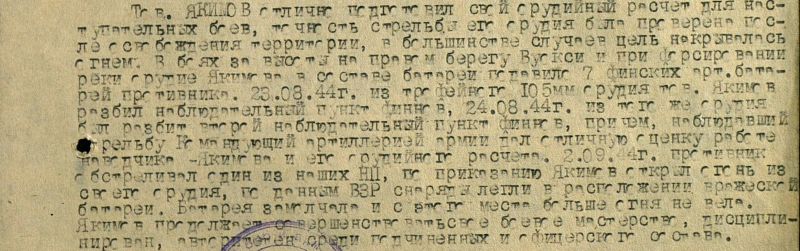 Тов. ЯКИМОВ отлично подготовил свой орудийный расчет для нас-
тупательных боев, точность стрельбы его орудия была проверена пос-
ле освобождения территории, в большинстве случаев цель накрывалась
огнем. В боях за высоты на правом берегу Вуокси и при форсировании
реки орудие Якимова в составе батареи подавило 7 финских арт.бата-
рей противника. 23.08.44г. из трофейного 105мм орудия тов. Якимов
разбил наблюдательный пункт финнов, 24.08.44г. из того же орудия
был разбит второй наблюдательный пункт финнов, причем, наблюдавший
стрельбу Командующий артиллерией армии дал отличную оценку работе
наводчика -Якимова и его орудийного расчета. 2.09.44г. противник
обстреливал один из наших НП, по приказанию Якимов открыл огонь из
своего орудия, по данным ВЗР снаряды легли в расположении вражеской
батареи. Батарея замолчала и с этого места больше огня не вела.
Якимов продолжает совершенствоватьсвое боевое мастерство, дисципли-
нирован, авторитетен среди подчиненных и офицерского состава.